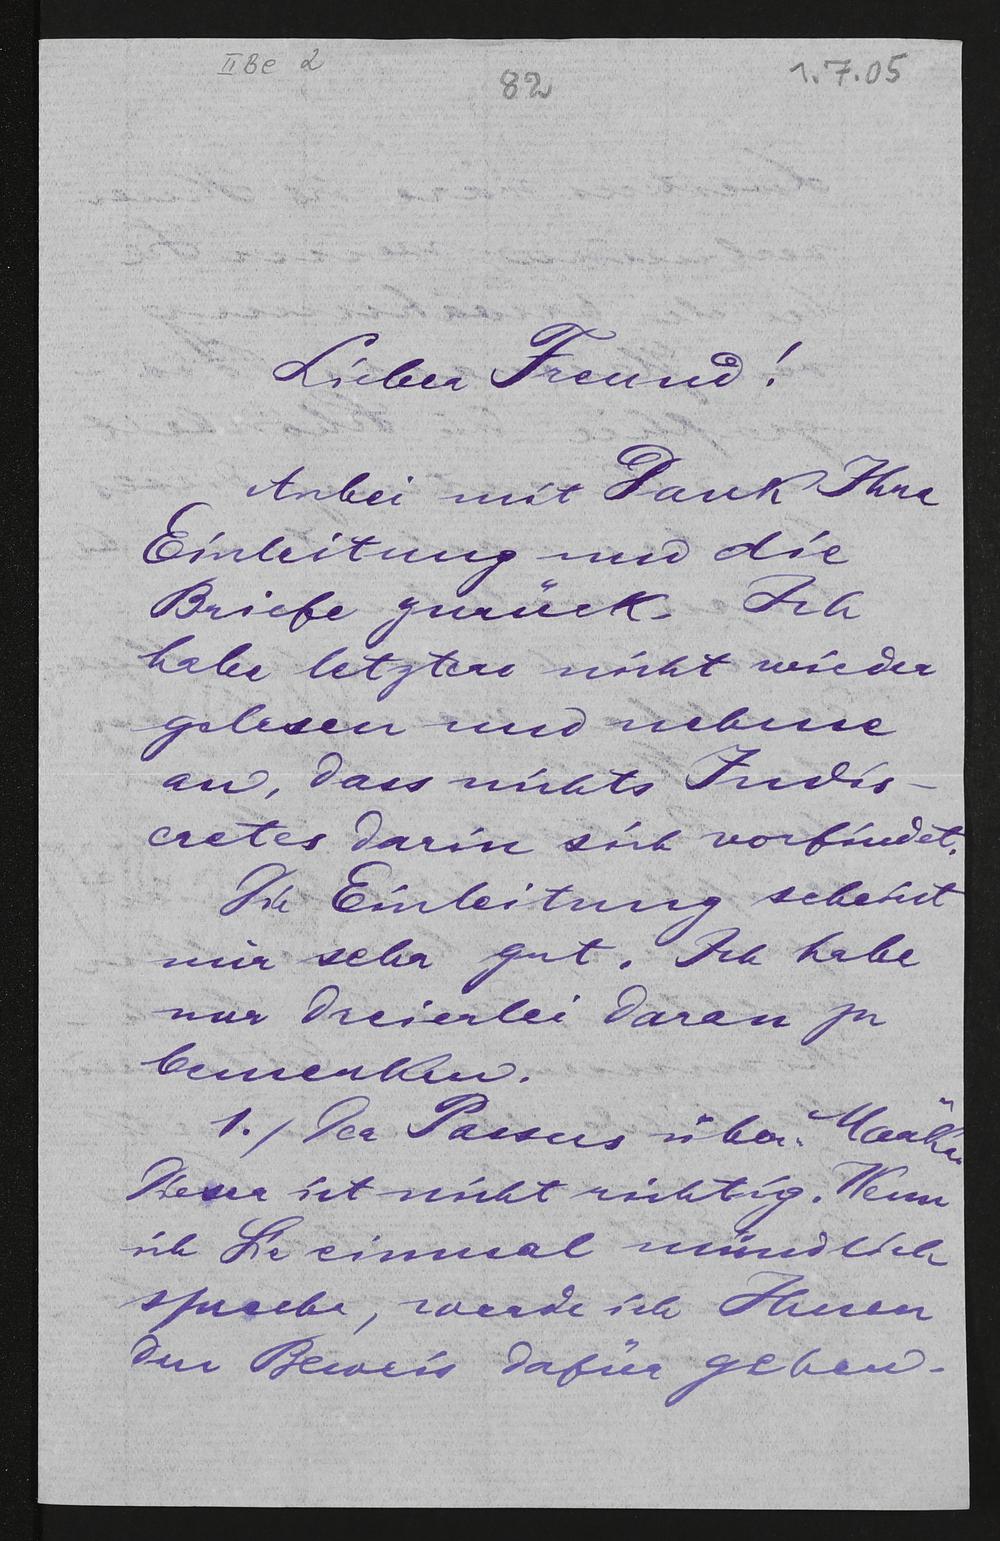 II Be 2
82
1.7.05
Lieber Freund!
Anbei mit Dank Ihre
Einleitung und die
Briefe zurück. Ich
habe letztere nicht wieder
gelesen und nehme
an, dass nichts Indis-
cretes darin sich vorfindet.
Die Einleitung scheint
mir sehr gut. Ich habe
nur dreierlei daran zu
bemerken.
1./ Der Passus über
Dieser ist nicht richtig. Wenn
ich Sie einmal mündlich
spreche, werde ich Ihnen
den Beweis dafür geben.